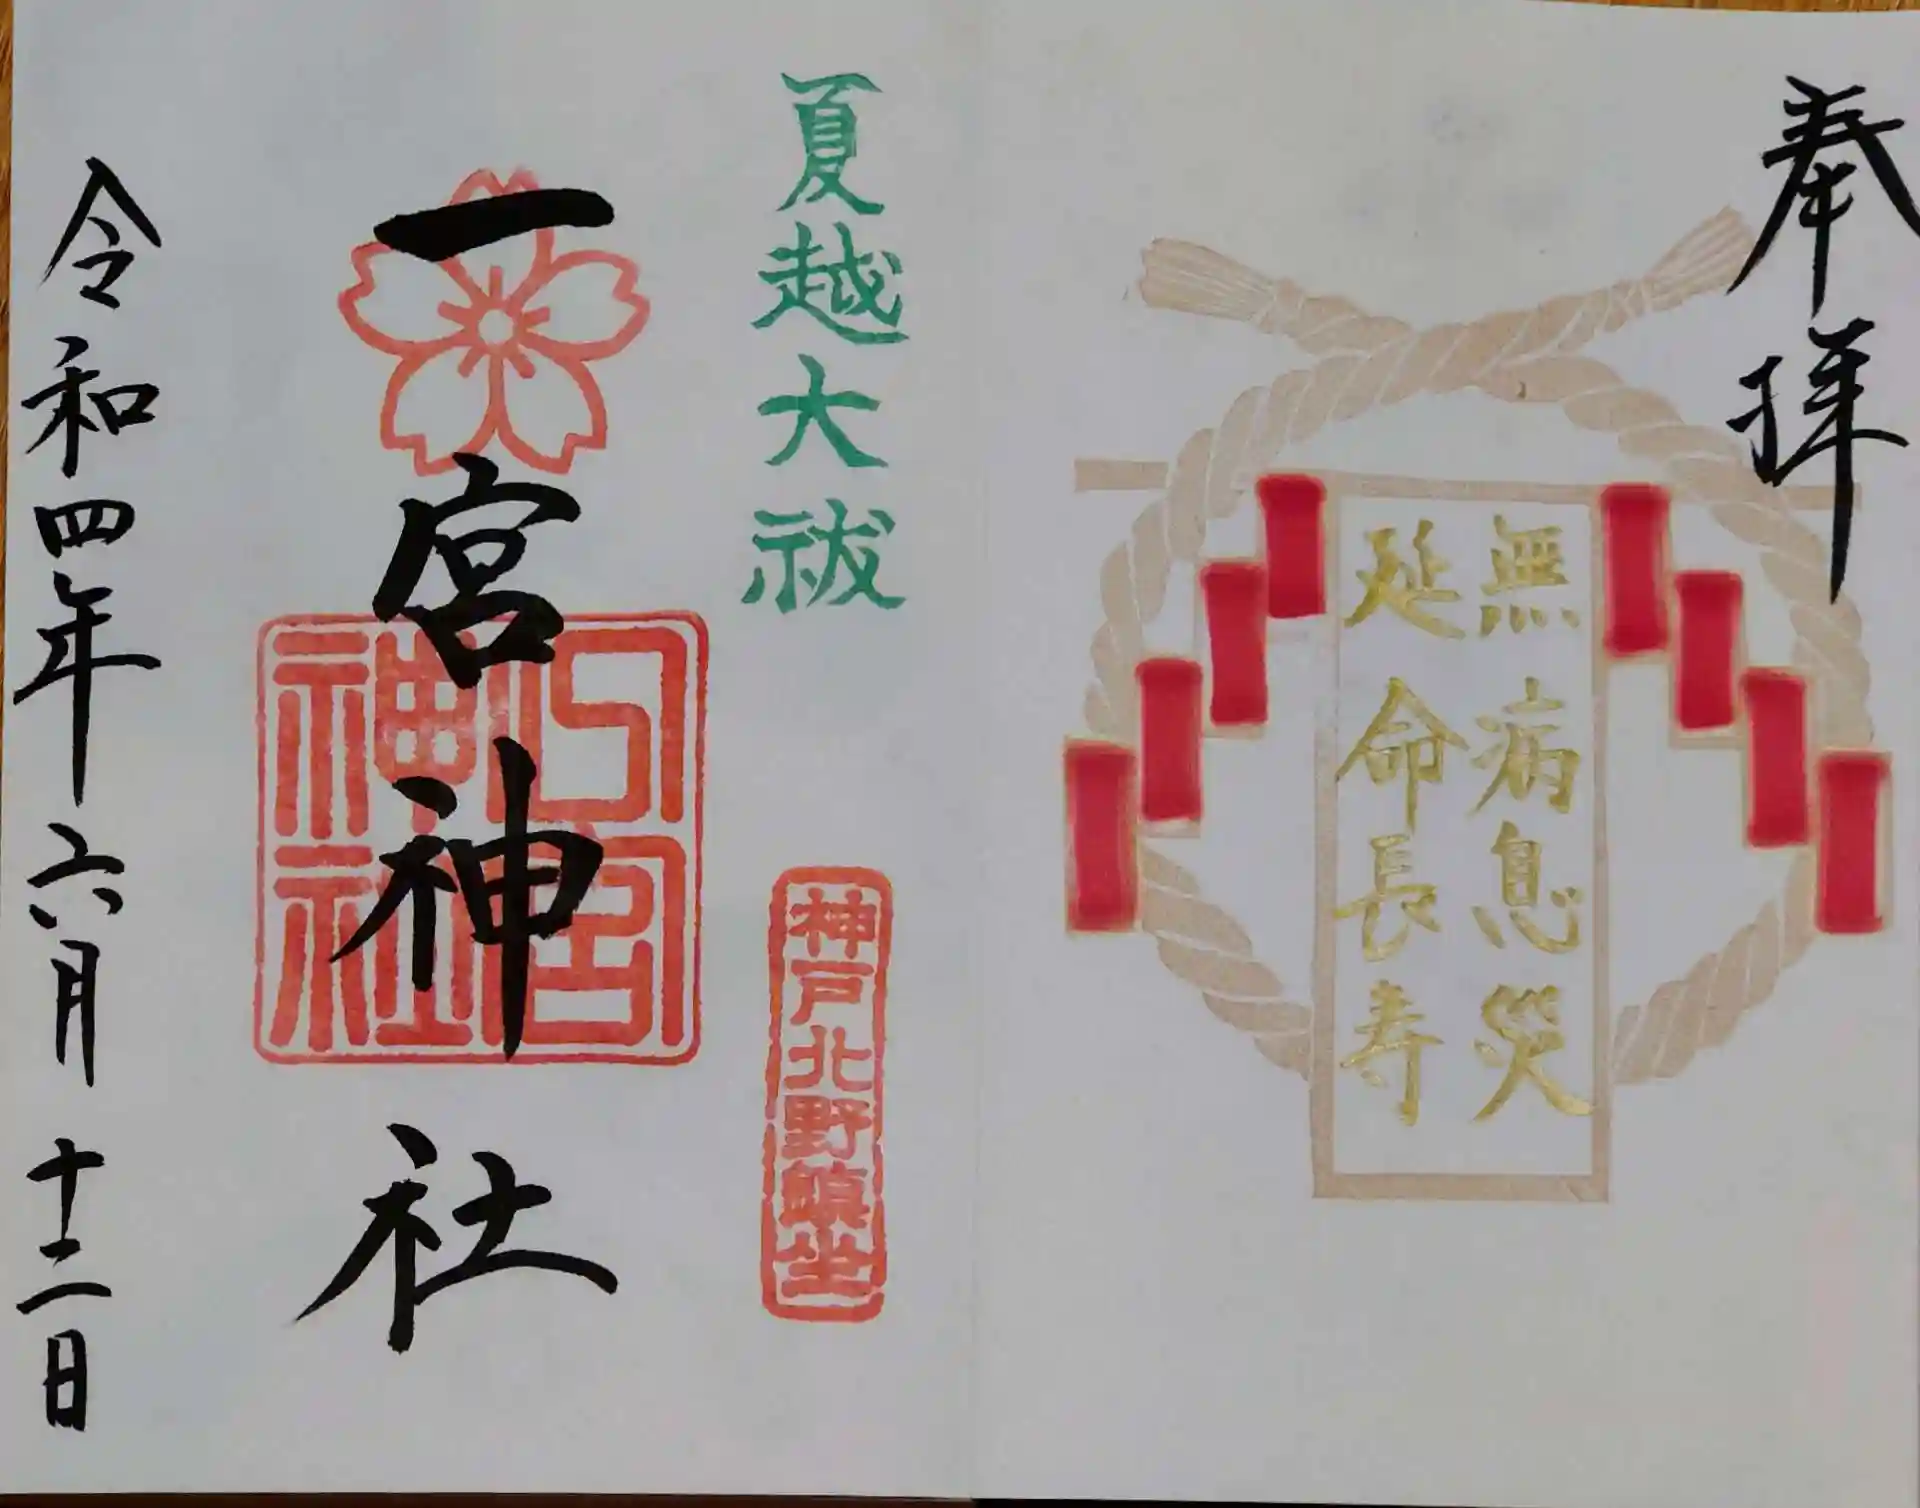 奉拝
無病息災
延命長寿
夏越大祓
神戸北野鎮坐
一宮神社
一宮神社
令和四年六月十二日